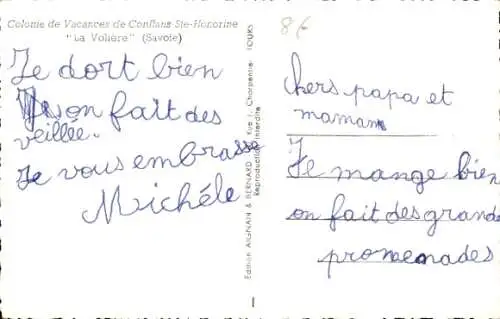 Colonie de Vacances de Conflans Ste-Honorine
"La Volière" (Savoie)
8€
chers papa et
maman
Je mange bien
on fait des grandes
promenades
Je dort bien
on fait des
veillée.
Je vous embrasse
Michéle
Edition AIGNAN & BERNARD Rue J. Charpentier TOURS
Reproduction interdite